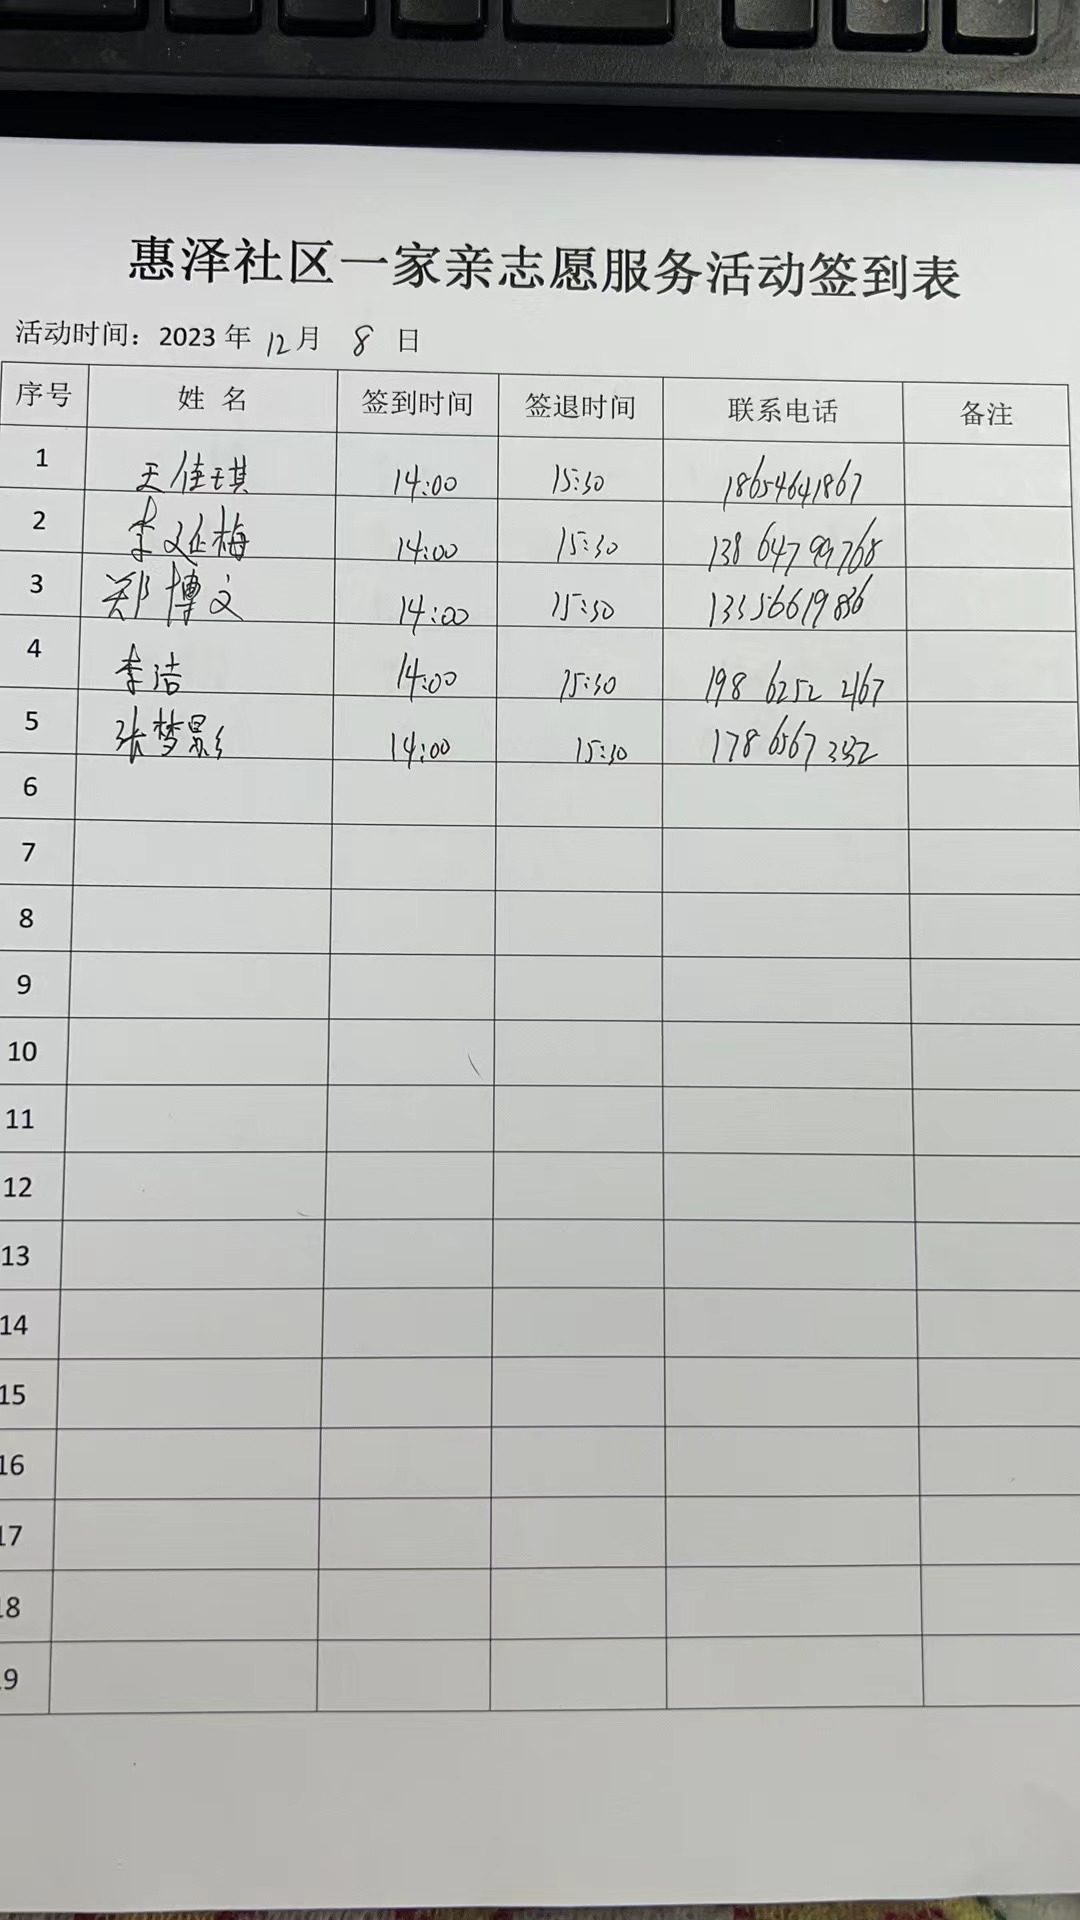 惠泽社区一家亲志愿服务活动签到表
活动时间：2023 年 12 月 8 日
序号 姓 名 签到时间 签退时间 联系电话 备注
1 王佳琪 14:00 15:30 18654641867
2 李延梅 14:00 15:30 138 64799768
3 郑博文 14:00 15:30 13356619836
4 李洁 14:00 15:30 198 6252 2167
5 张梦影 14:00 15:30
6
7
8
9
10
11
12
13
14
15
16
17
18
19